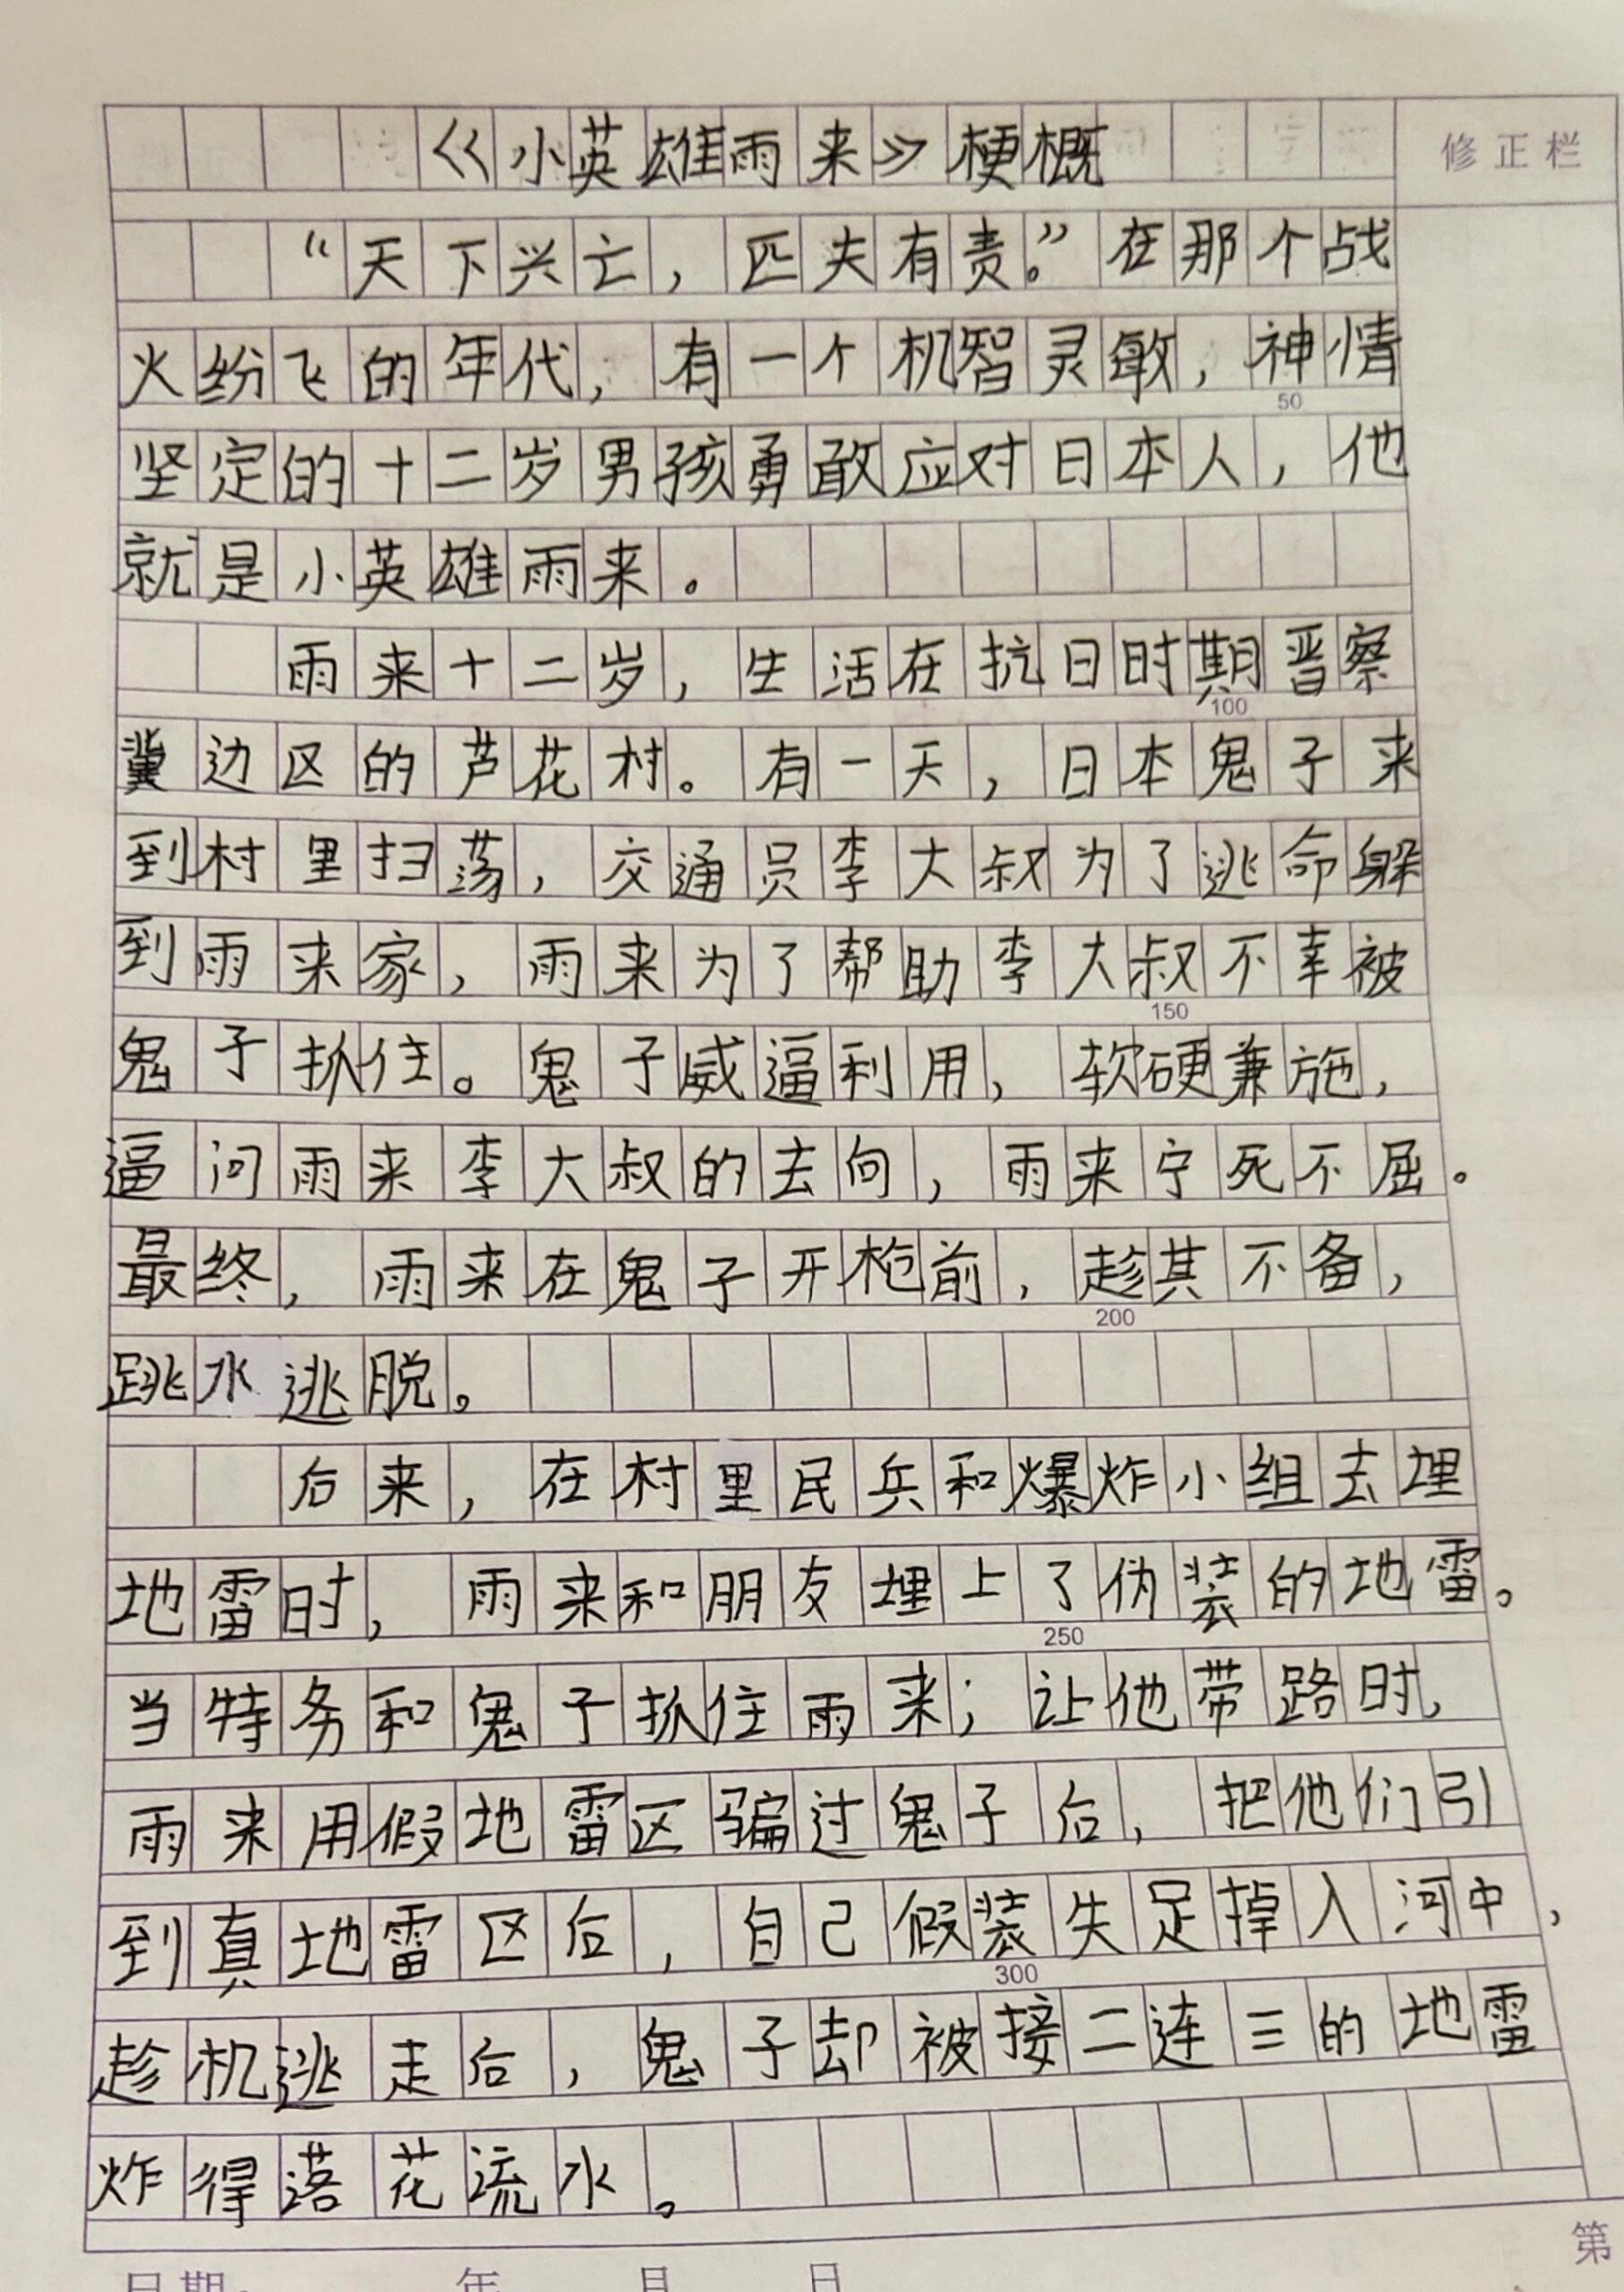 《小英雄雨来》梗概
修正栏
“天下兴亡，匹夫有责。”在那个战
火纷飞的年代，有一个机智灵敏，神情
50
坚定的十二岁男孩勇敢应对日本人，他
就是小英雄雨来。
雨来十二岁，生活在抗日时期晋察
100
冀边区的芦花村。有一天，日本鬼子来
到村里扫荡，交通员李大叔为了逃命躲
到雨来家，雨来为了帮助李大叔不幸被
150
鬼子抓住。鬼子威逼利用，软硬兼施，
逼问雨来李大叔的去向，雨来宁死不屈。
最终，雨来在鬼子开枪前，趁其不备，
200
跳水逃脱。
后来，在村里民兵和爆炸小组去埋
地雷时，雨来和朋友埋上了伪装的地雷。
250
当特务和鬼子抓住雨来；让他带路时，
雨来用假地雷区骗过鬼子后，把他们引
到真地雷区后，自己假装失足掉入河中，
300
趁机逃走后，鬼子却被接二连三的地雷
炸得落花流水。
第
日期： 年 月 日